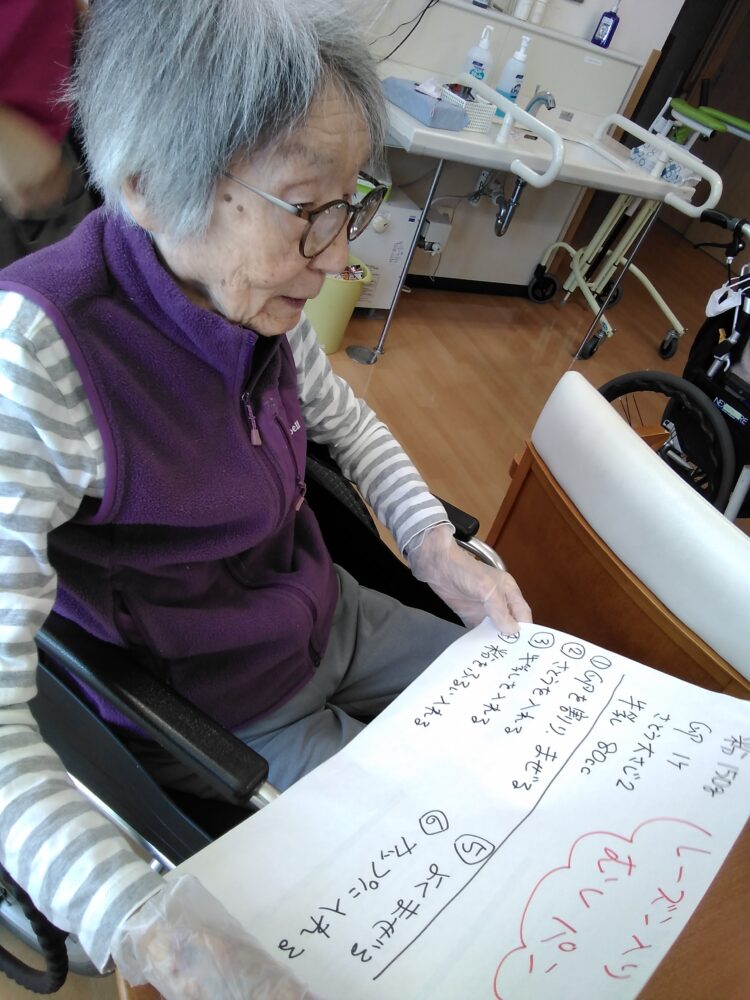 レーズン入り
むしパン
粉 150g
卵 1ケ
さとう大さじ2
牛乳 80cc
①卵を割り、まぜる
②さとうを入れる
③牛乳を入れる
④粉をふるい入れる
⑤よくまぜる
⑥カップに入れる
bell